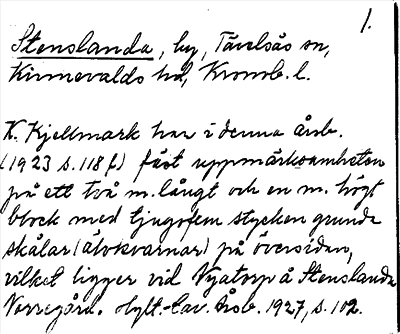 1.
Stenslanda, by, Tävelsås sn,
Kinnevalds hd, Kronob. l.
K. Kjellmark har i denna årsb.
(1923 s. 118 f.) fäst uppmärksamheten
på ett två m. långt och en m. högt
block med tjugofem stycken grunda
skålar (älvkvarnar) på översidan,
vilket ligger vid Nyatorp å Stenslanda
Norregård. Hylt.-Cav. Årsb. 1927, s. 102.